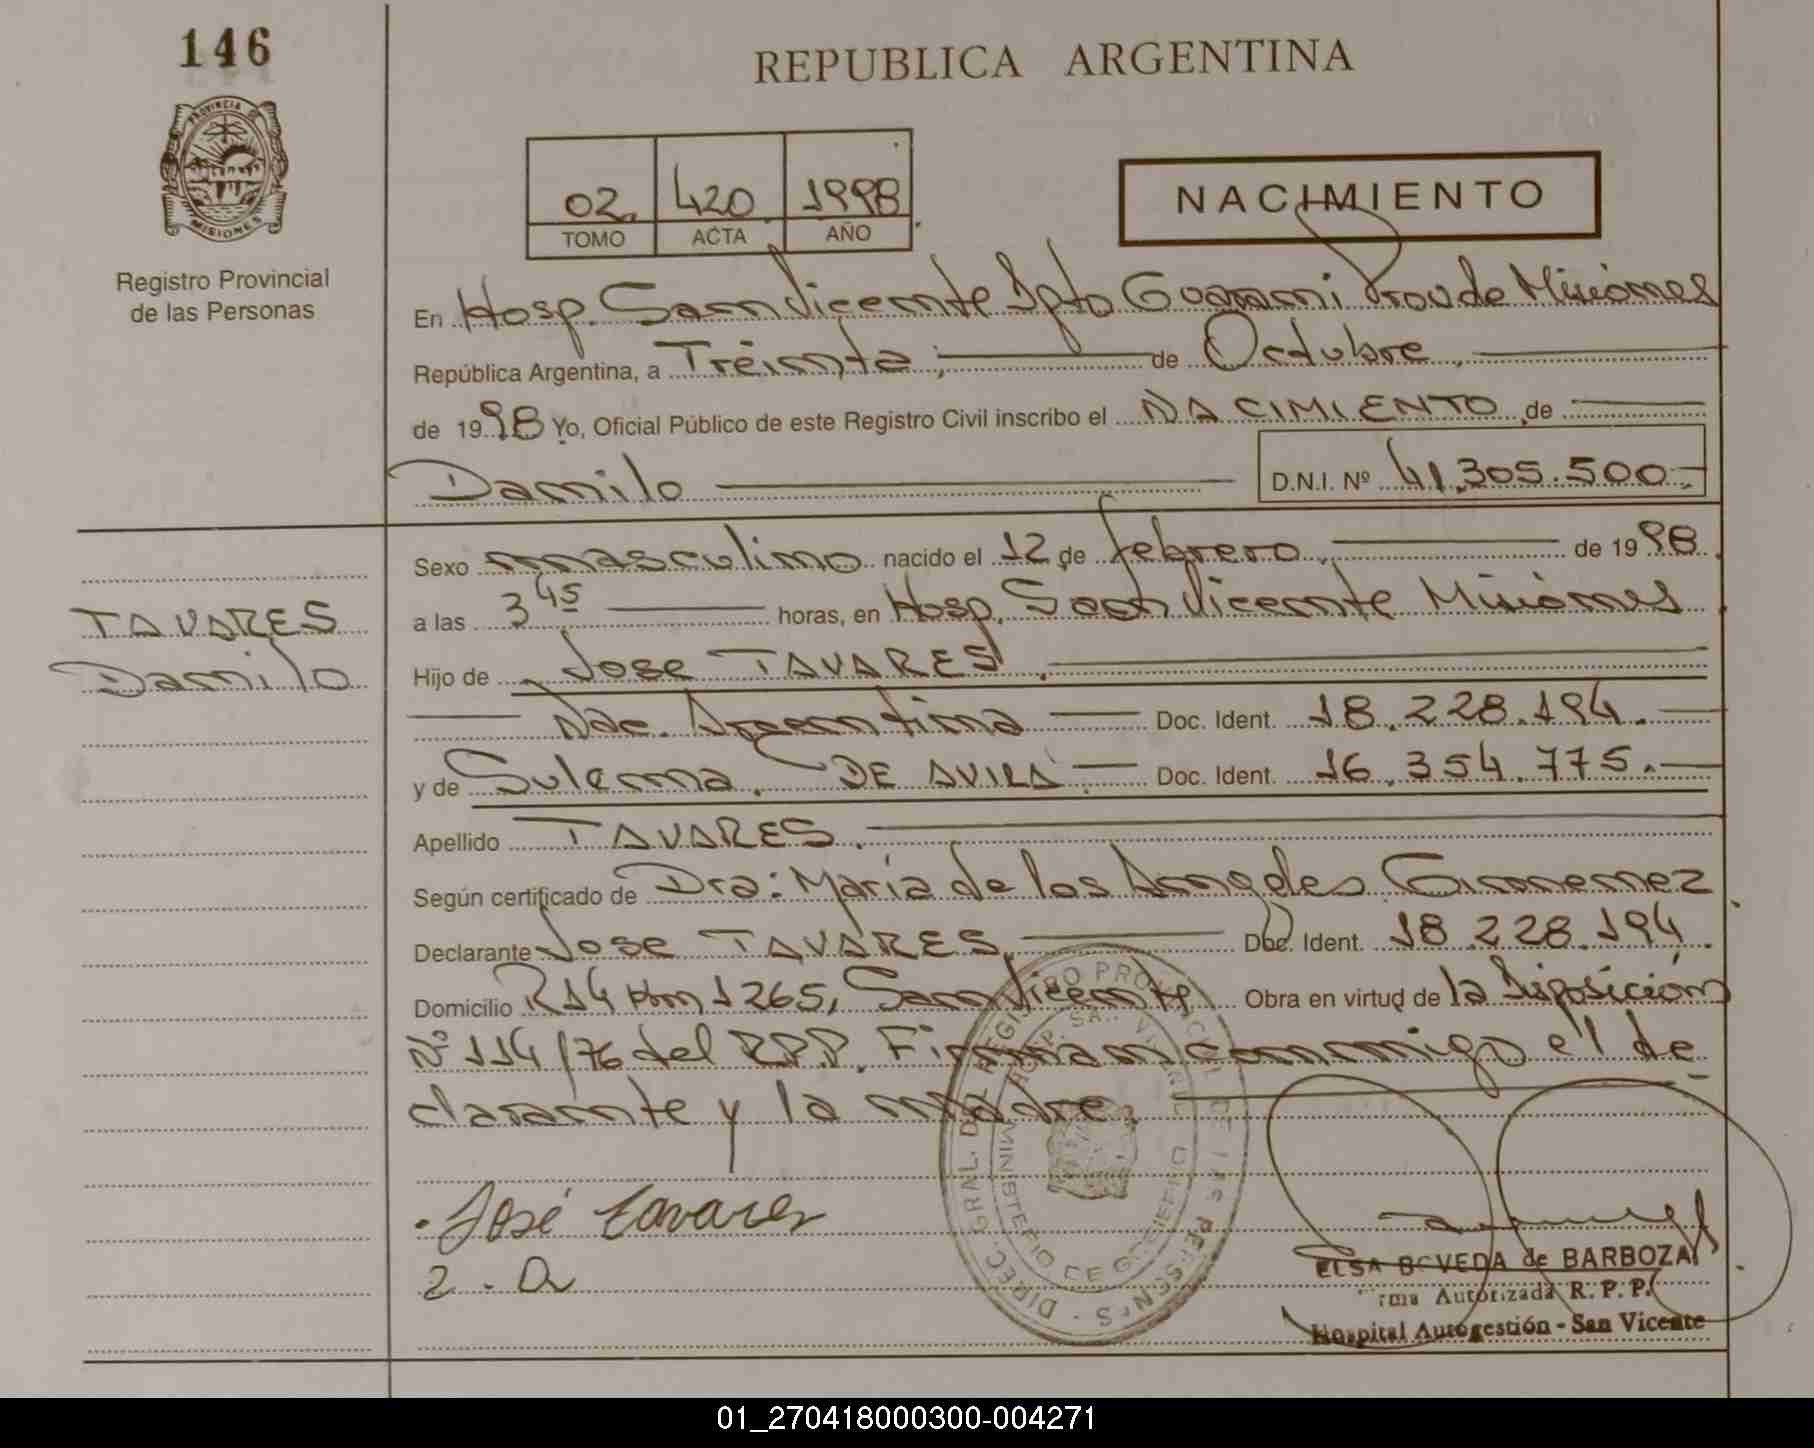 146
PROVINCIA
MISIONES
Registro Provincial
de las Personas
REPUBLICA ARGENTINA
02. 420 1998
TOMO ACTA AÑO
NACIMIENTO
En Hosp. San Vicente Dpto Guarani Prov de Misiones
República Argentina, a Treinta, de Octubre,
de 1998 Yo, Oficial Público de este Registro Civil inscribo el NACIMIENTO de
Danilo D.N.I. Nº 41.305.500.-
Sexo masculino nacido el 12 de febrero, de 1998.
TAVARES
a las 3 45 horas, en Hosp. San Vicente Misiones
Danilo
Hijo de Jose TAVARES.
Nac. Argentina Doc. Ident. 18.228.194.
y de Sulema. DE AVILA. Doc. Ident. 16.354.775.
Apellido TAVARES.
Según certificado de Dra: María de los Angeles Gimenez
Declarante Jose TAVARES, Doc. Ident. 18.228.194.
Domicilio R14 Km 1265, San Vicente Obra en virtud de la Disposición
Nº 114/76 del R.P.P. Firman conmigo el de
clarante y la madre.
DIREC. GRAL. DEL REGISTRO PROVINCIAL DE LAS PERSONAS
HOSP. SAN VICENTE
MINISTERIO DE GOBIERNO
José Tavares
2.
ELSA BOVEDA de BARBOZA
Firma Autorizada R. P. P.
Hospital Autogestión - San Vicente
01_270418000300-004271